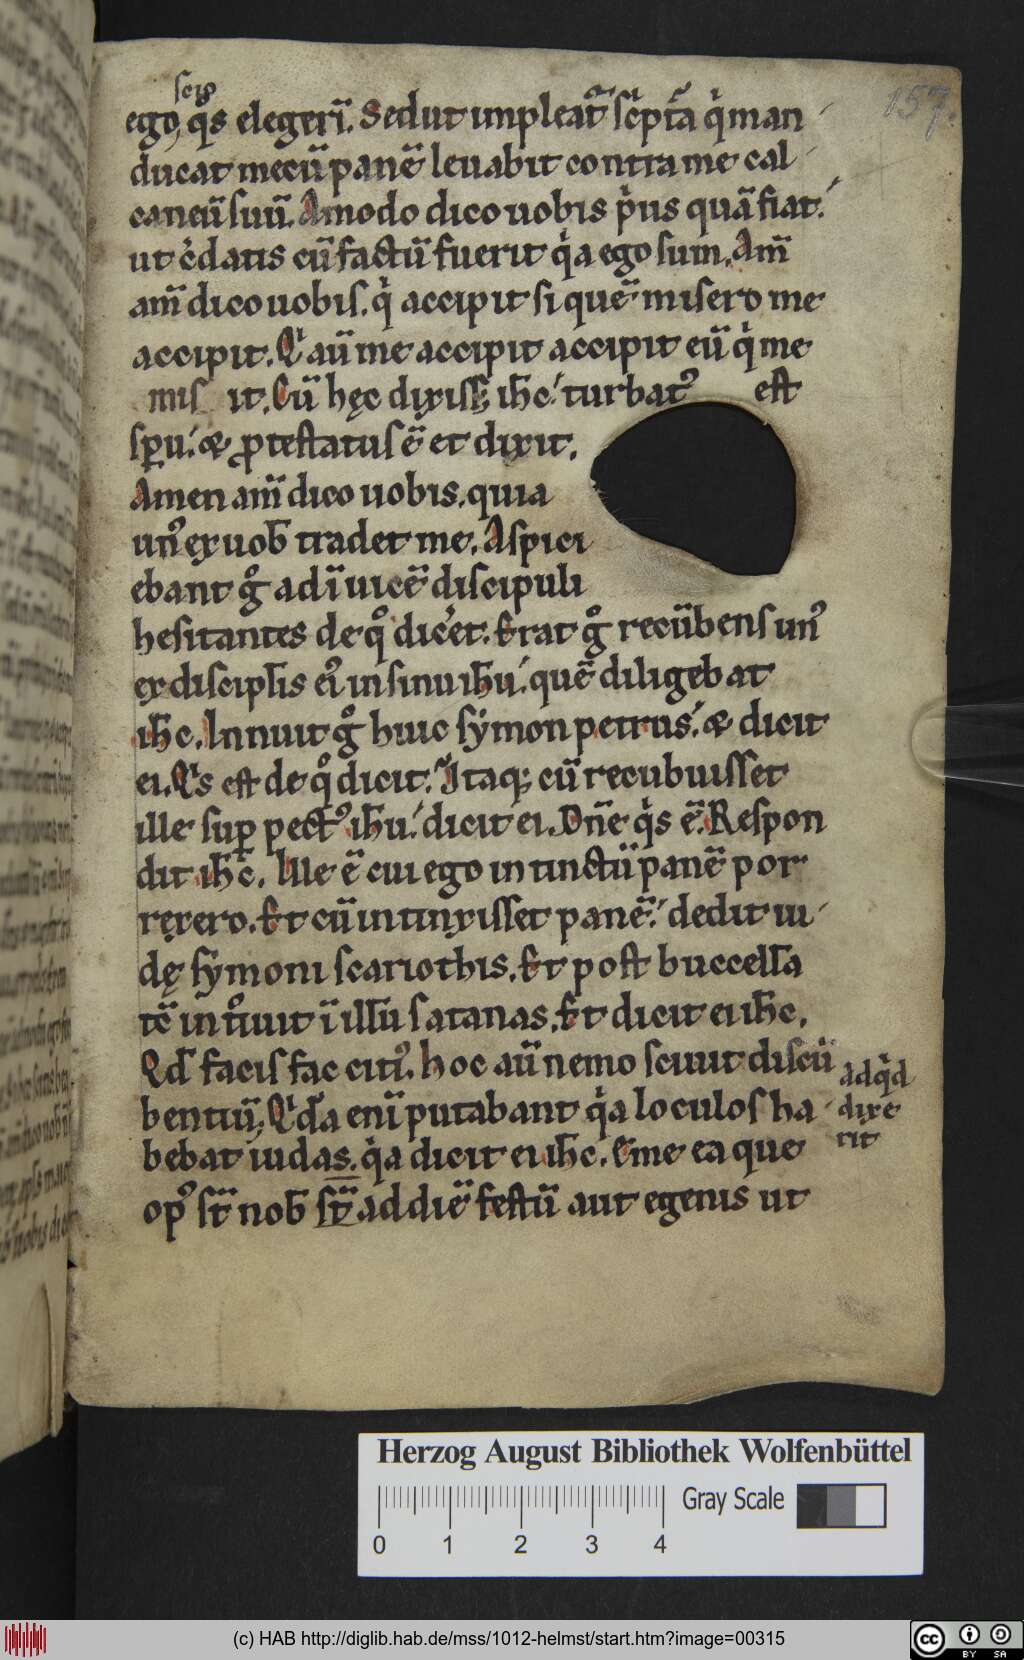 scio
157.
ego, q̇s elegerī. Sed ut impleat᷑ sc̄pt᷑a q̇ man
ducat mecū panē leuabit contra me cal
caneū suū. Amodo dico uobis p̍us quā fiat.
ut c̍datis cū factū fuerit q̍a ego sum. Am̄
am̄ dico uobis. q̍ accipit si quē misero me
accipit. Q̍ aū me accipit accipit eū q̍ me
mis it. Cū hęc dixiss; ih̄c turbat᷒ est
sp̄u. & ꝓtestatus ē et dixit.
Amen am̄ dico uobis. quia
un᷒ ex uob̄ tradet me. Aspici
ebant gͦ ad īuicē discipuli
hesitantes de qͦ dic̍et. Erat gͦ recūbens un᷒
ex discipl̄is ei᷒ in sinu ih̄u. quē diligebat
ih̄c. Innuit gͦ huic sẏmon petrus. & dicit
ei. Q̍s est de qͦ dicit. Itaq; cū recubuisset
ille suꝑ pect᷒ ih̄u. dicit ei. Dn̄e q̍s ē. Respon
dit ih̄c. Ille ē cui ego intinctū panē por
rexero. Et cū intinxisset panē. dedit iu
dę sẏmoni scariothis. Et post buccell̄a
tc̄ intͦiuit ī ill̄u satanas. Et dicit ei ih̄c.
Qd̄ facis fac citi᷒. hoc aū nemo sciuit discū
bentiū, Q̍da eni putabant q̍a loculos ha
bebat iudas. q̍a dicit ei ih̄c. Eme ea que
op᷒ st̄ nob̄ st̄ ad diē festū aut egenis ut
ad q̍d
dixe
rit
Herzog August Bibliothek Wolfenbüttel
Gray Scale
0 1 2 3 4
(c) HAB http://diglib.hab.de/mss/1012-helmst/start.htm?image=00315
cc BY SA